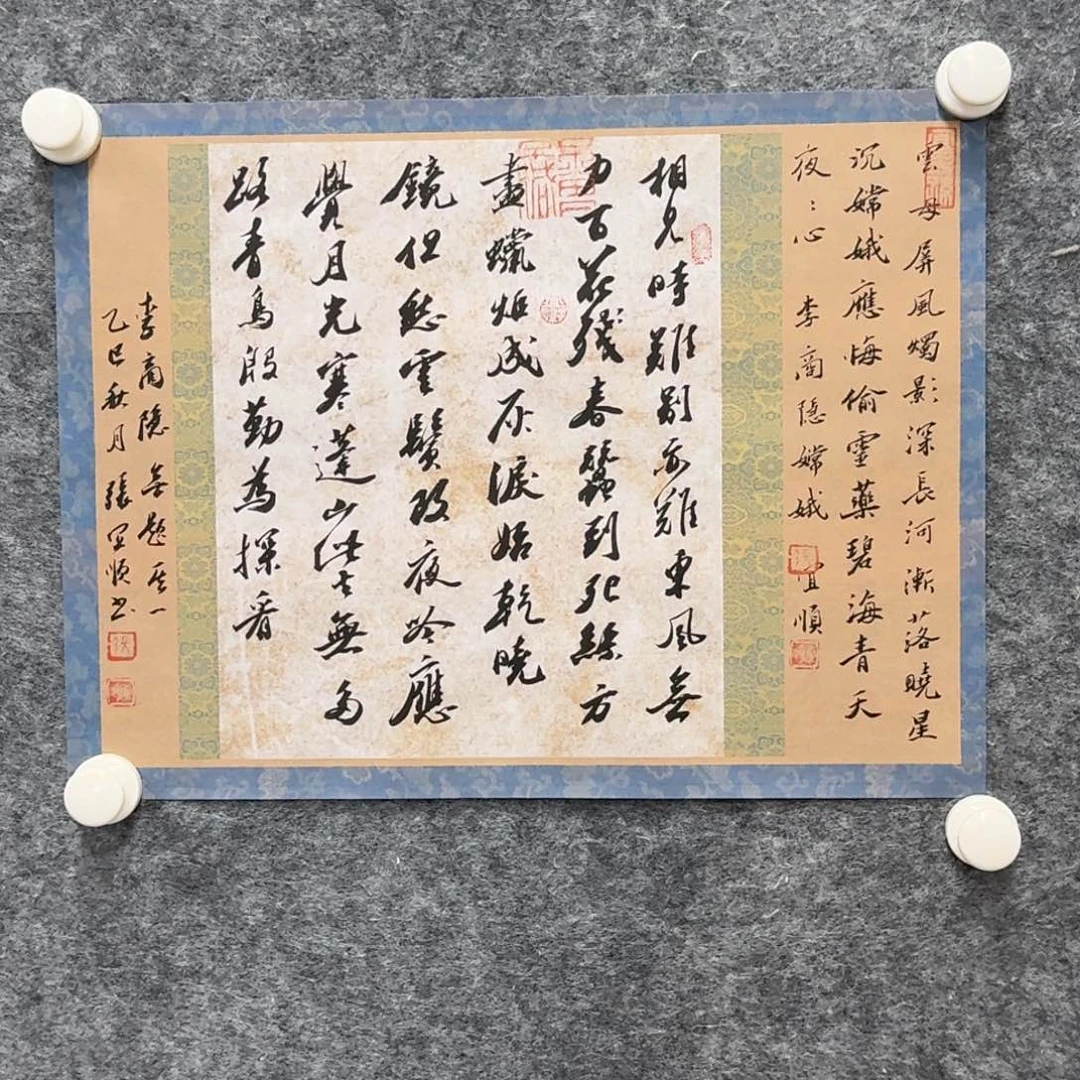 雲母屏風燭影深長河漸落曉星
沉嫦娥應悔偷靈藥碧海青天
夜〻心 李商隱嫦娥 宜順
相見時難別亦難東風無
力百花殘春蠶到死絲方
盡蠟炬成灰淚始乾曉
鏡但愁雲鬢改夜吟應
覺月光寒蓬山此去無多
路青鳥殷勤為探看
李商隱無題其一
乙巳秋月張宜順書